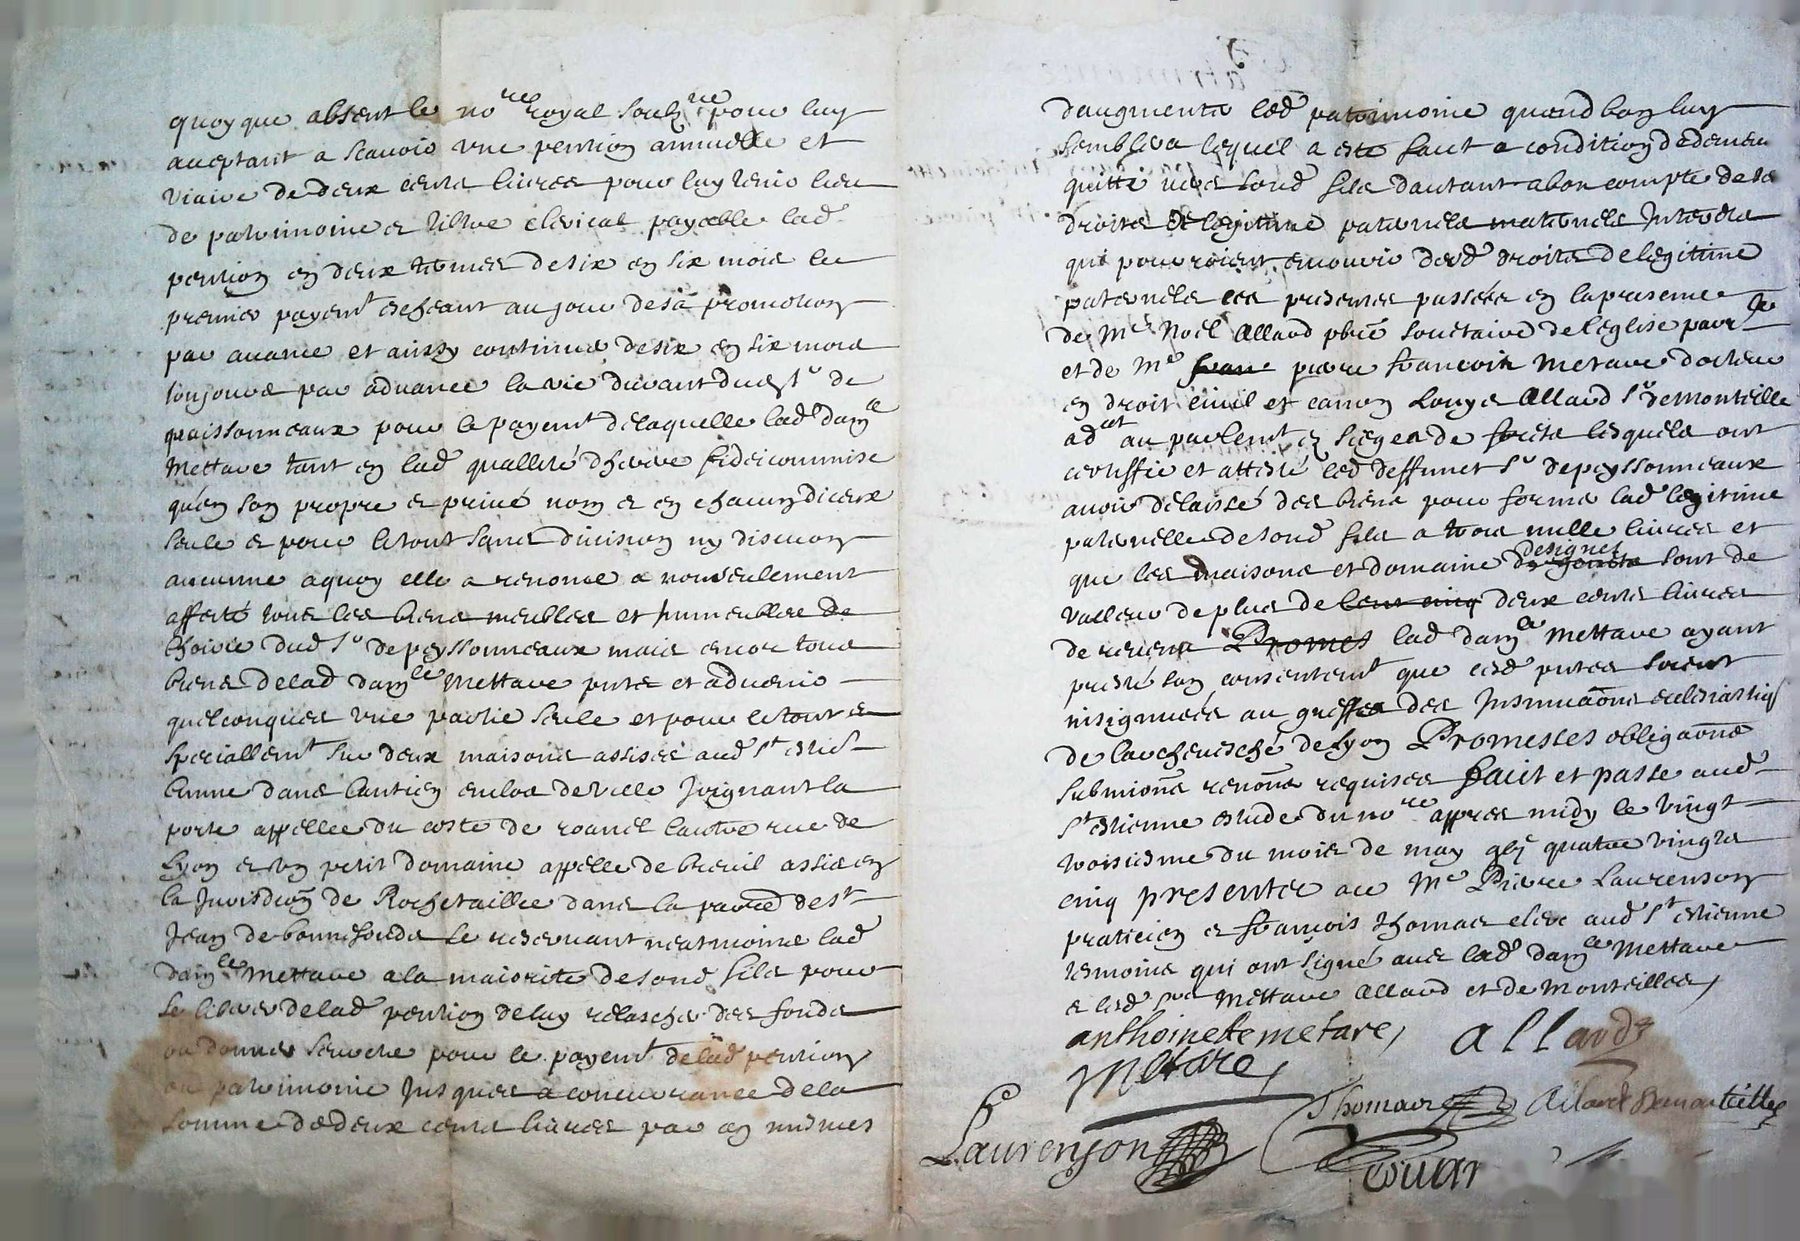 quoy que absent le no.re royal soubz.ne pour luy
acceptant a scavoir une pention annuelle et
viaire de deux cents livres pour luy tenir lieu
de patrimoine & tiltre clerical payable lad.
pention en deux termes de six en six mois le
premier payem.t escheant au jour de sa promotion
par avance et aussy continuer de six en six mois
toujours par advance la vie durant dud s.r de
peissonneaux pour le payem.t de laquelle lad dam.lle
Mettare tant en lad quallité d'heritiere fideicommise
qu'en son propre & privé nom & en chacun diceux
seule & pour le tout sans division ny discution
aucunne aquoy elle a renoncé a non seulement
affecté tous les biens meubles et immeubles de
lhoirie dud S.r depeyssonneaux mais encor tous
biens de lad dam.lle Mettare pnts et advenir
quelconques une partie seule et pour le tout &
speciallem.t sur deux maisons assises aud S.t Estie
benne dans lantien enclos de ville joignant la
porte appellee du costé de roanel lautre rue de
Lyon & un petit domaine appelle de breuil assis en
la jurisdion de Rochetaillee dans la parred de S.t
Jean de bonnefonds se reservant neantmoins lad
dam.lle Mettare a la majorite de sond fils pour
se liberer de lad pention de luy relascher des fonds
ou donner seurcté pour le payem.t de lad pention
ou patrimoine jusques a concurrance de la
somme de deux cents livres par an mismes
daugmenter led patrimoine quand bon luy
semblera lequel a esté faict a condition de demeu
quitte vers sond fils dautant a bon compte de ses
droits de legitime paternels maternels interets
qui pourroient encourir desd droits de legitime
paternels ces presentes passées en la presence
de M.re Noel Allard pbre societaire de leglise parr.le
et de M.e fran pierre francois Metare docteur
en droit civil et canon Louys Allard s.r de Monteille
ad.cat au parlem.t & sieges de forets lesquels ont
certiffié et attesté led deffunct S.r depeyssonneaux
avoir delaissé des biens pour former lad legitime
paternelle de sond fils a trois mille livres et
que les maisons et domaine designes sont de
valleur de plus de cent cinq deux cents livres
de revenu Promes lad dam.lle Mettare ayant
presté son consentem.t que cesd pntes soient
insignuées au greffes des Insinuaons eclesiastiq
de larchevesché de Lyon Promesses obligaons
submions renons requises faict et passé aud
S.t Estienne estude du no.re appres midy le vingt
troisiesme du mois de may gbj quatre vingts
cinq presentes ac M.e Pierre Laurenson
praticien & francois thomas clerc aud S.t Estienne
tesmoins qui ont signé avec lad dam.lle Mettare
& lesd S.rs Mettare Allard et de Monteilles
anthoinete metare, allard
Metare,
Thomas Allard Demonteilles
Laurenson